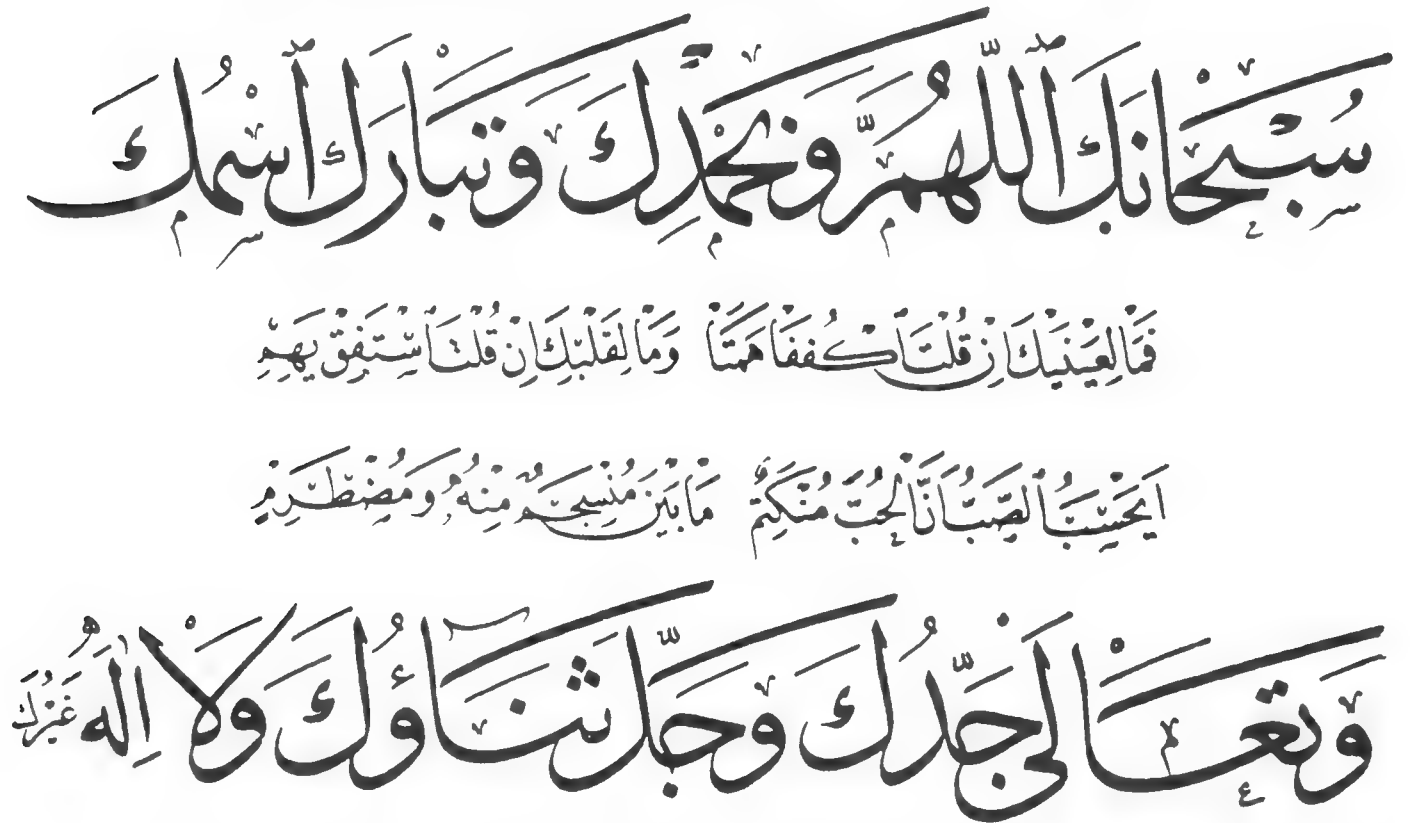 سُبْحَانَكَ ٱللّٰهُمَّ وَبِحَمْدِكَ وَتَبَارَكَ ٱسْمُكَ
فَمَا لِعَيْنَيْكَ اِنْ قُلْتَ اكْفُفَا هَمَتَا وَمَا لِقَلْبِكَ اِنْ قُلْتَ اسْتَفِقْ يَهِمِ
اَيَحْسَبُ الصَّبُّ اَنَّ الْحُبَّ مُنْكَتِمٌ مَا بَيْنَ مُنْسَجِمٍ مِنْهُ وَمُضْطَرِمِ
وَتَعَالَى جَدُّكَ وَجَلَّ ثَنَاؤُكَ وَلَا اِلٰهَ غَيْرُكَ